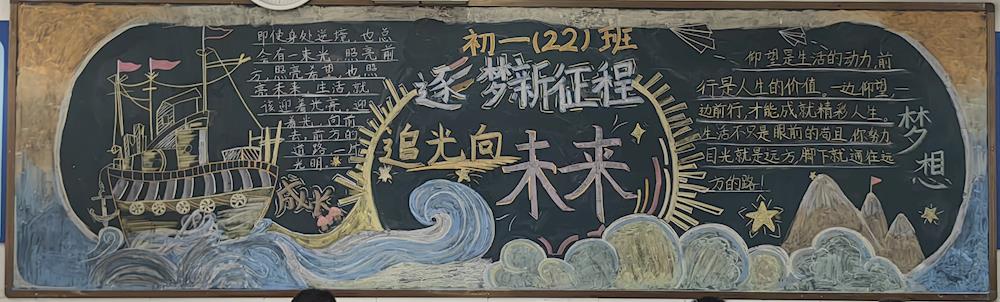 初一(22)班
逐梦新征程
追光向
未来
即使身处逆境,也总
会有一束光,照亮前
方,照亮希望,也照
亮未来,生活就
该迎着光亮,迎
着光,向前
去,前方的
道路一片
光明
成长
仰望是生活的动力,前
行是人生的价值。一边仰望,一
边前行,才能成就精彩人生。
生活不只是眼前的苟且,你努力
目光就是远方,脚下就通往远
方的路!
梦
想